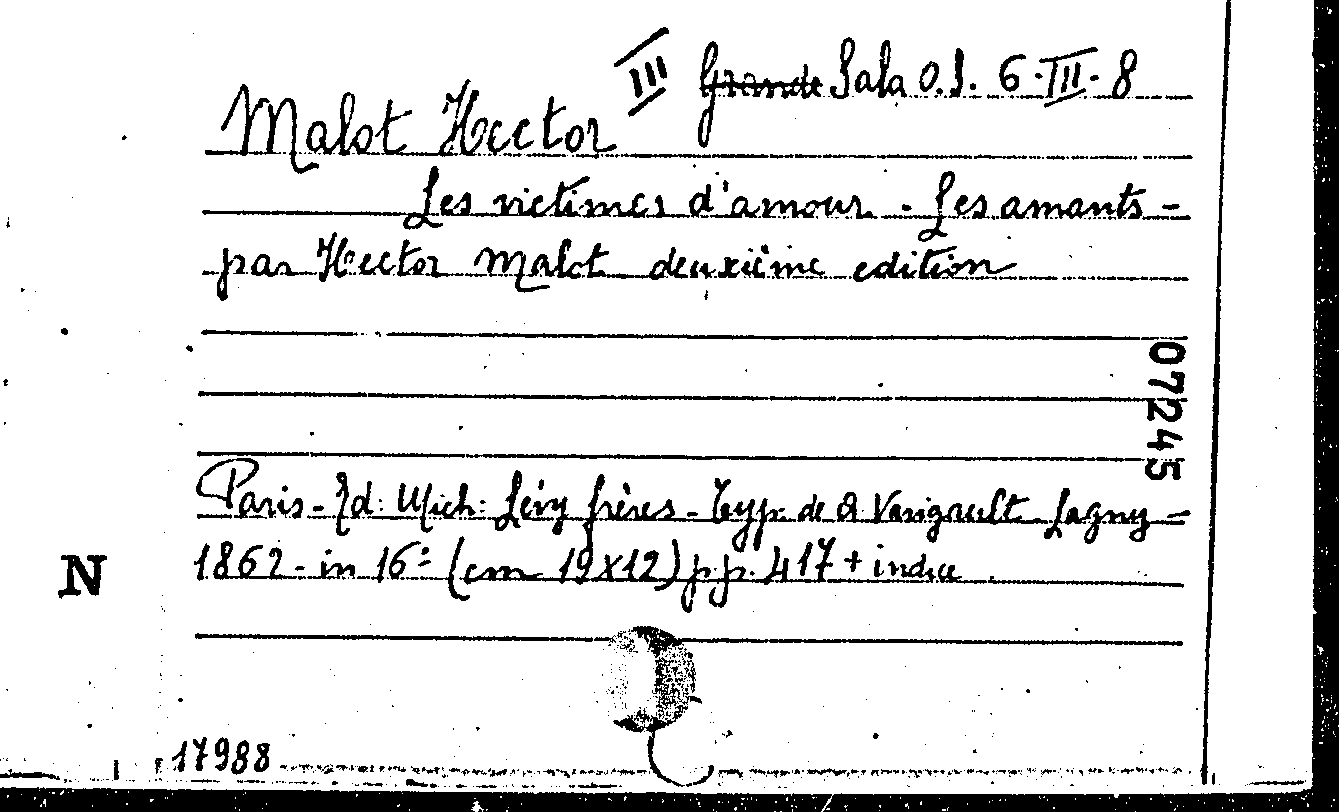 III Grande Sala O.S. 6-III-8
Malot Hector
Les victimes d'amour - Les amants -
par Hector Malot deuxième edition
07245
Paris - Ed: Mich: Lévy frères - Typ. de A Varigault Lagny -
1862 - in 16° (cm 19x12) pp. 417 + indice
N
17988